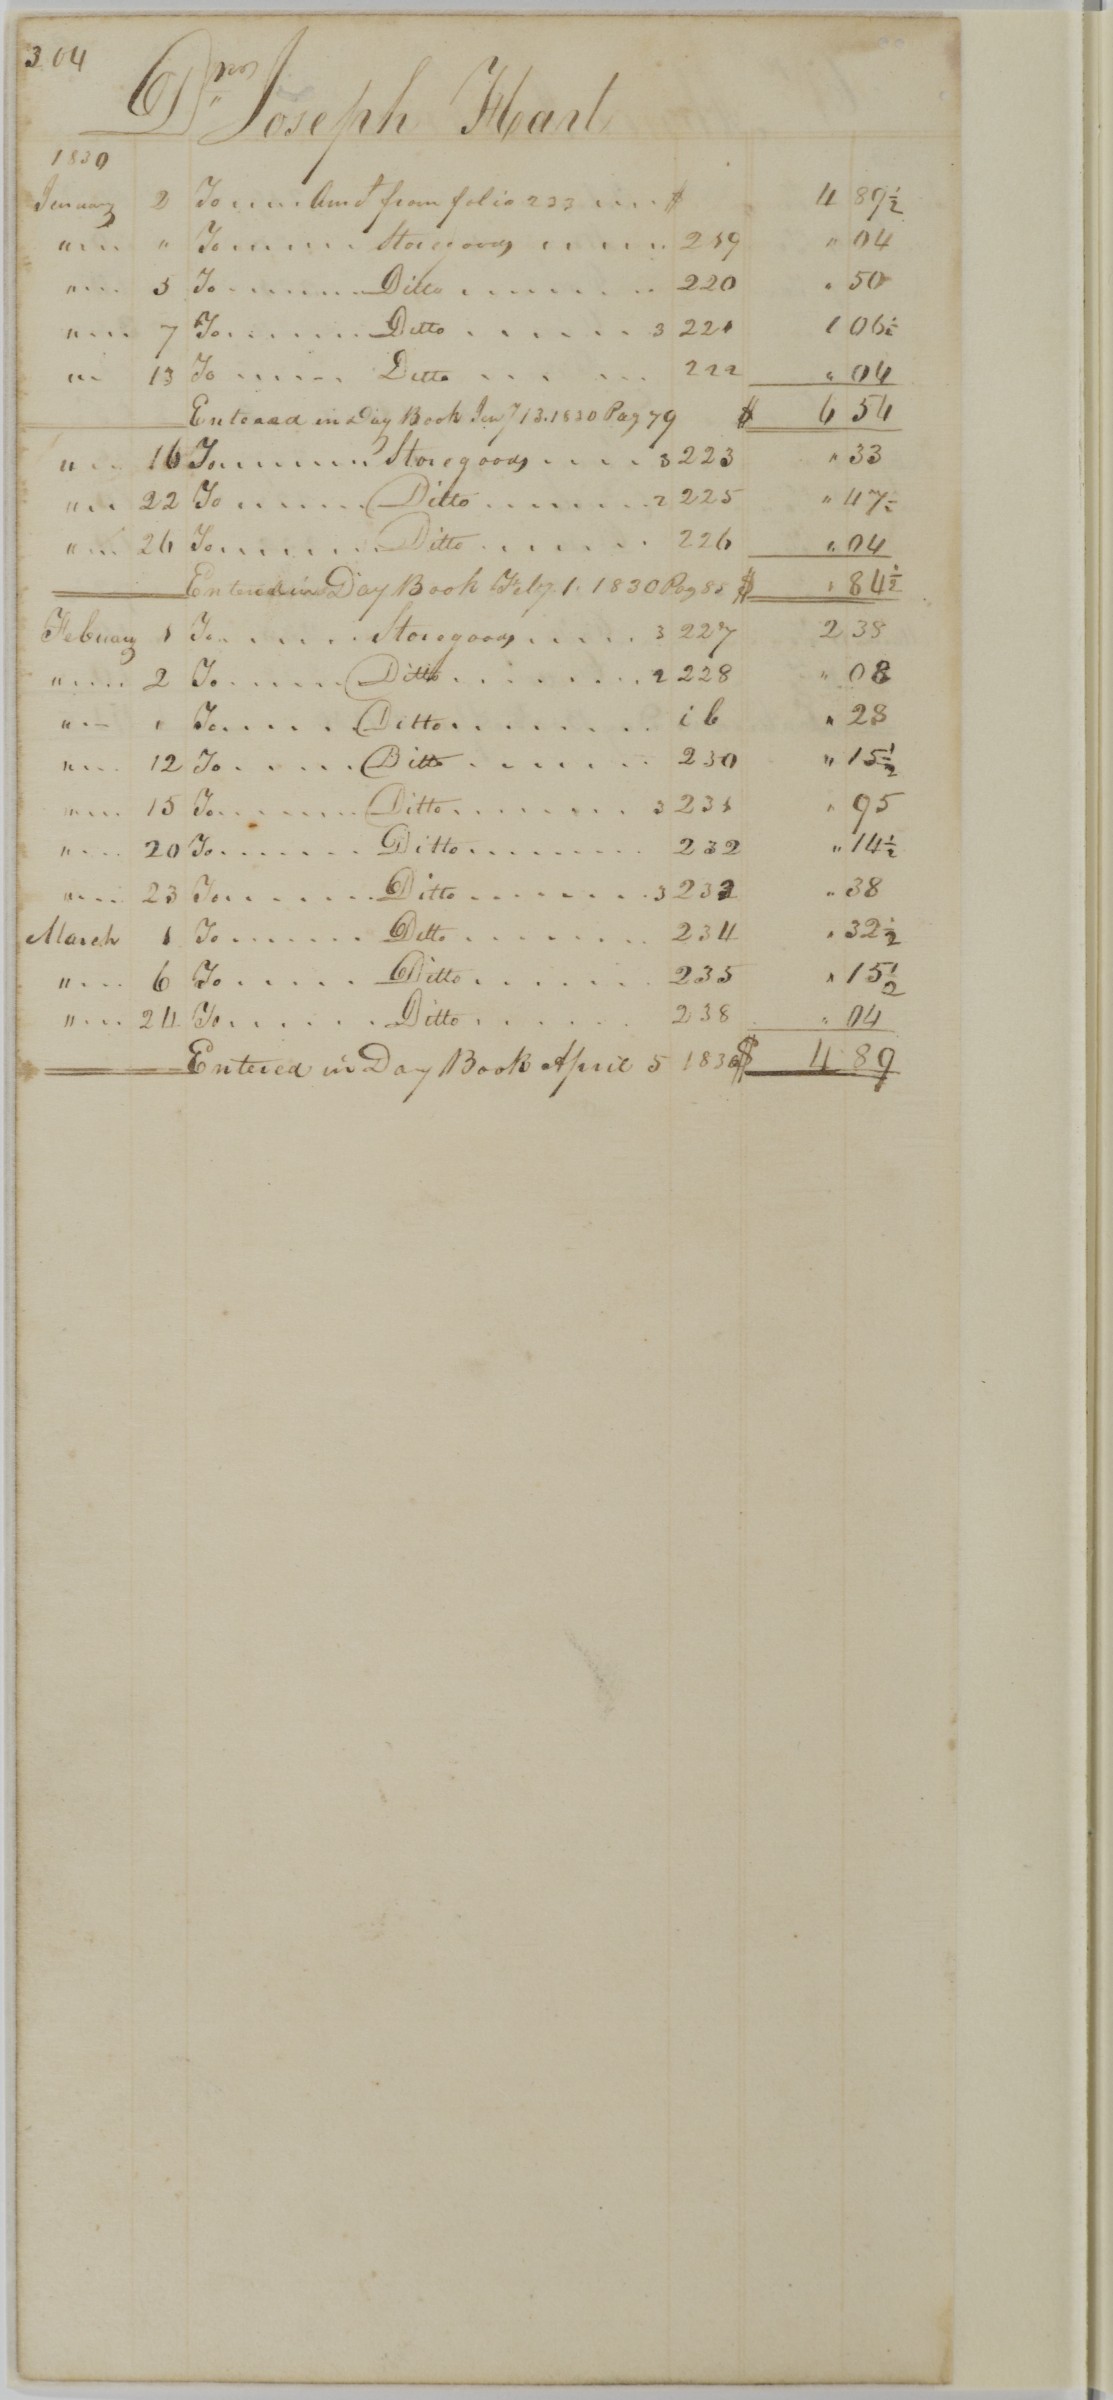 304
Drs Joseph Hart
1830
Jenuary 2 To .... Amt from folio 233 .... $ 4 89½
" ... " To ...... Storegoods ...... 219 " 04
" ... 5 To ....... Ditto ........ 220 " 50
" ... 7 To ...... Ditto ...... 3 221 1 06½
" .. 13 To ..... Ditto ... ... 222 " 04
Entered in Day Book Jeny 13. 1830 Pag 79 $ 6 54
" ... 16 To ....... Storegoods .... 3 223 " 33
" ... 22 To ...... Ditto ........ 2 225 " 47½
" ... 26 To ....... Ditto ...... 226 " 04
Entered in Day Book Feby. 1. 1830 Pag 85 $ " 84½
Febuary 1 To ...... Storegoods ..... 3 227 2 38
" .... 2 To ...... Ditto ........ 2 228 " 08
" .. " To ..... Ditto ........ ib " 28
" ... 12 To ..... Ditto ....... 230 " 15½
" ... 15 To ....... Ditto ....... 3 231 " 95
" ... 20 To ....... Ditto ........ 232 " 14½
" ... 23 To ....... Ditto ....... 3 232 " 38
March 1 To ...... Ditto ........ 234 " 32½
" ... 6 To ..... Ditto ....... 235 " 15½
" ... 24 To ...... Ditto ...... 238 " 04
Entered in Day Book April 5 1830 $ 4 89